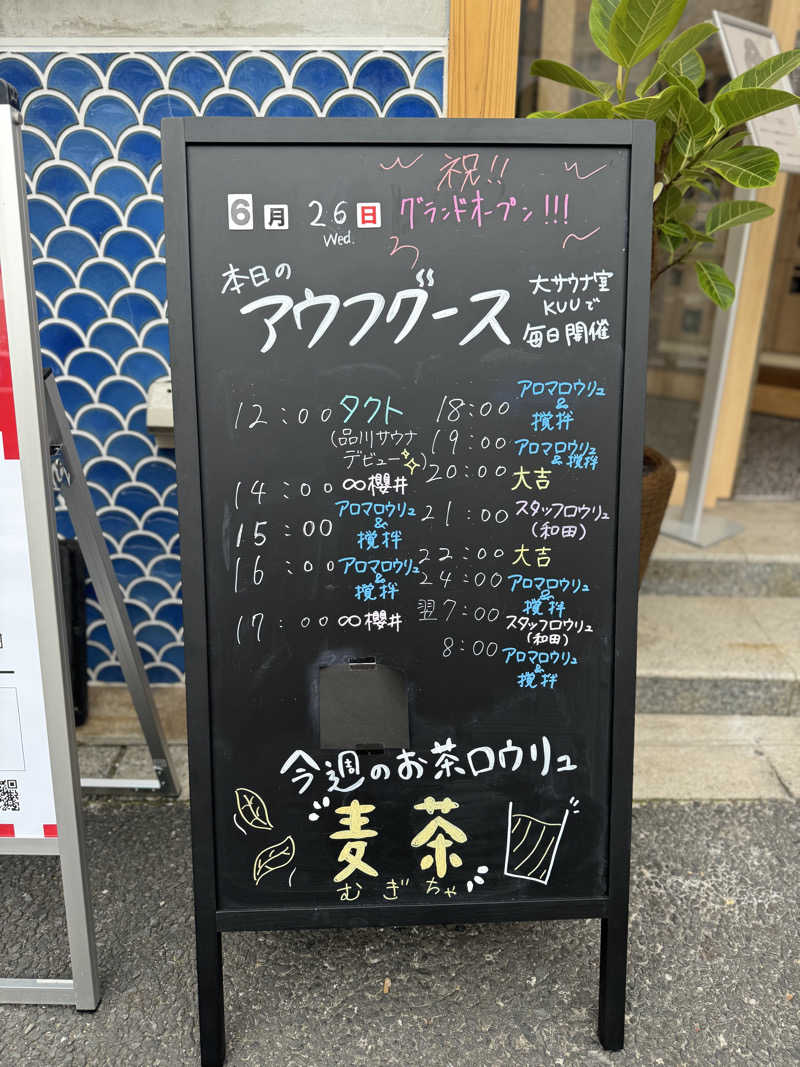 祝!!
6月 26日 グランドオープン!!!
Wed.
本日の
アウフグース
大サウナ室
KUUで
毎日開催
12:00 タクト
(品川サウナ
デビュー)
14:00 ∞櫻井
15:00 アロマロウリュ
&
撹拌
16:00 アロマロウリュ
&
撹拌
17:00 ∞櫻井
18:00 アロマロウリュ
&
撹拌
19:00 アロマロウリュ
&撹拌
20:00 大吉
21:00 スタッフロウリュ
(和田)
22:00 大吉
24:00 アロマロウリュ
&
撹拌
翌7:00 スタッフロウリュ
(和田)
8:00 アロマロウリュ
&
撹拌
今週のお茶ロウリュ
麦茶
むぎちゃ